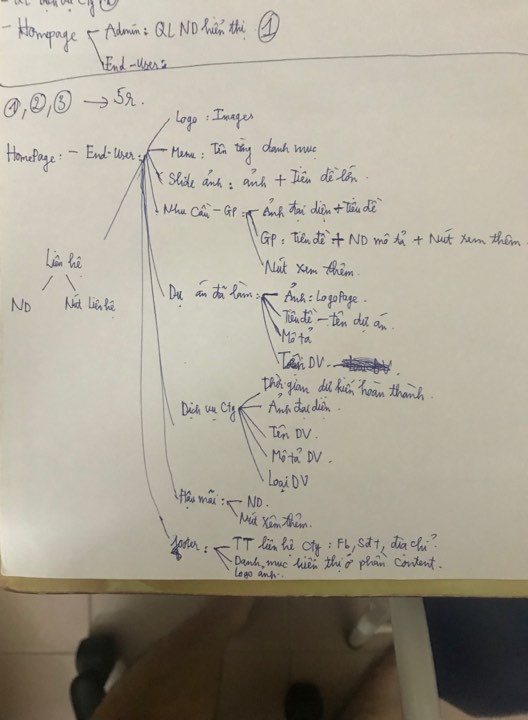 - Homepage Admin: QL ND hiển thị. ①
End-User:
①,②,③ → 5r.
HomePage: - End-User:
Logo: Images
Menu: Tên từng danh mục
Slide ảnh: ảnh + Tiêu đề lớn.
Nhu Cầu - GP: Ảnh đại diện + tiêu đề
GP: Tiêu đề + ND mô tả + Nút xem thêm.
Nút xem thêm.
Liên hệ
ND Nút Liên hệ
Dự án đã làm: Ảnh: LogoPage.
Tiêu đề - tên dự án.
Mô tả
DV.
Thời gian dự kiến hoàn thành.
Dịch vụ Cty Ảnh đại diện.
Tên DV.
Mô tả DV.
Loại DV
Hậu mãi: ND.
Nút xem thêm.
footer: TT liên hệ Cty: Fb, Sdt, địa chỉ
Danh mục hiển thị ở phần Content.
Logo ảnh.